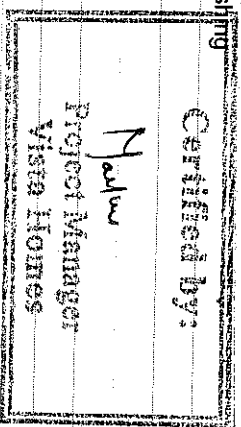 shing
Certified by:
Project Manager
Vista Homes